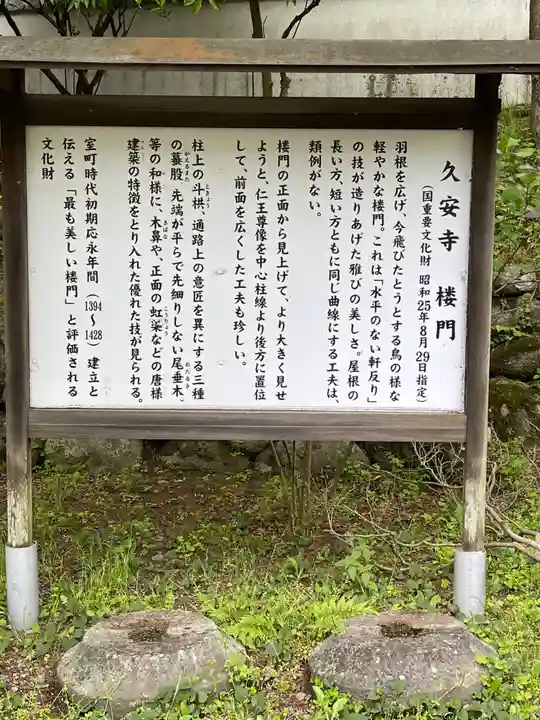 久安寺 楼門
（国重要文化財 昭和25年8月29日指定）
羽根を広げ、今飛びたとうとする鳥の様な
軽やかな楼門。これは「水平のない軒反り」
の技が造りあげた雅びの美しさ。屋根の
長い方、短い方ともに同じ曲線にする工夫は、
類例がない。
楼門の正面から見上げて、より大きく見せ
ようと、仁王尊像を中心柱線より後方に置位
して、前面を広くした工夫も珍しい。
柱上の斗栱、通路上の意匠を異にする三種
ときょう
の蟇股、先端が平らで先細りしない尾垂木、
かえるまた
おだるき
等の和様に、木鼻や、正面の虹梁などの唐様
きばな
こうりょう
建築の特徴をとり入れた優れた技が見られる。
室町時代初期応永年間（1394～1428）建立と
伝える「最も美しい楼門」と評価される
文化財